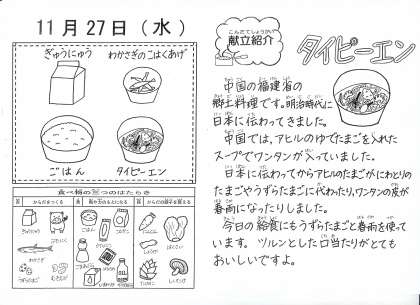 11月27日（水）
ぎゅうにゅう
わかさぎのごはくあげ
ごはん
タイピーエン
食べ物の三つのはたらき
からだをつくる
熱や力のもとになる
からだの調子を整える
ぎゅうにゅう
わかさぎ
こんだてしょうかい
献立紹介
タイピーエン
中国の福建省の
郷土料理です。明治時代に
日本に伝わってきました。
中国では、アヒルのゆでたまごを入れた
スープでワンタンが入っていました。
日本に伝わってからアヒルのたまごがにわとりの
たまごやうずらたまごに代わったり、ワンタンの皮が
春雨になったりしました。
今日の給食にもうずらたまごと春雨を使って
います。ツルンとした口当たりがとても
おいしいですよ。